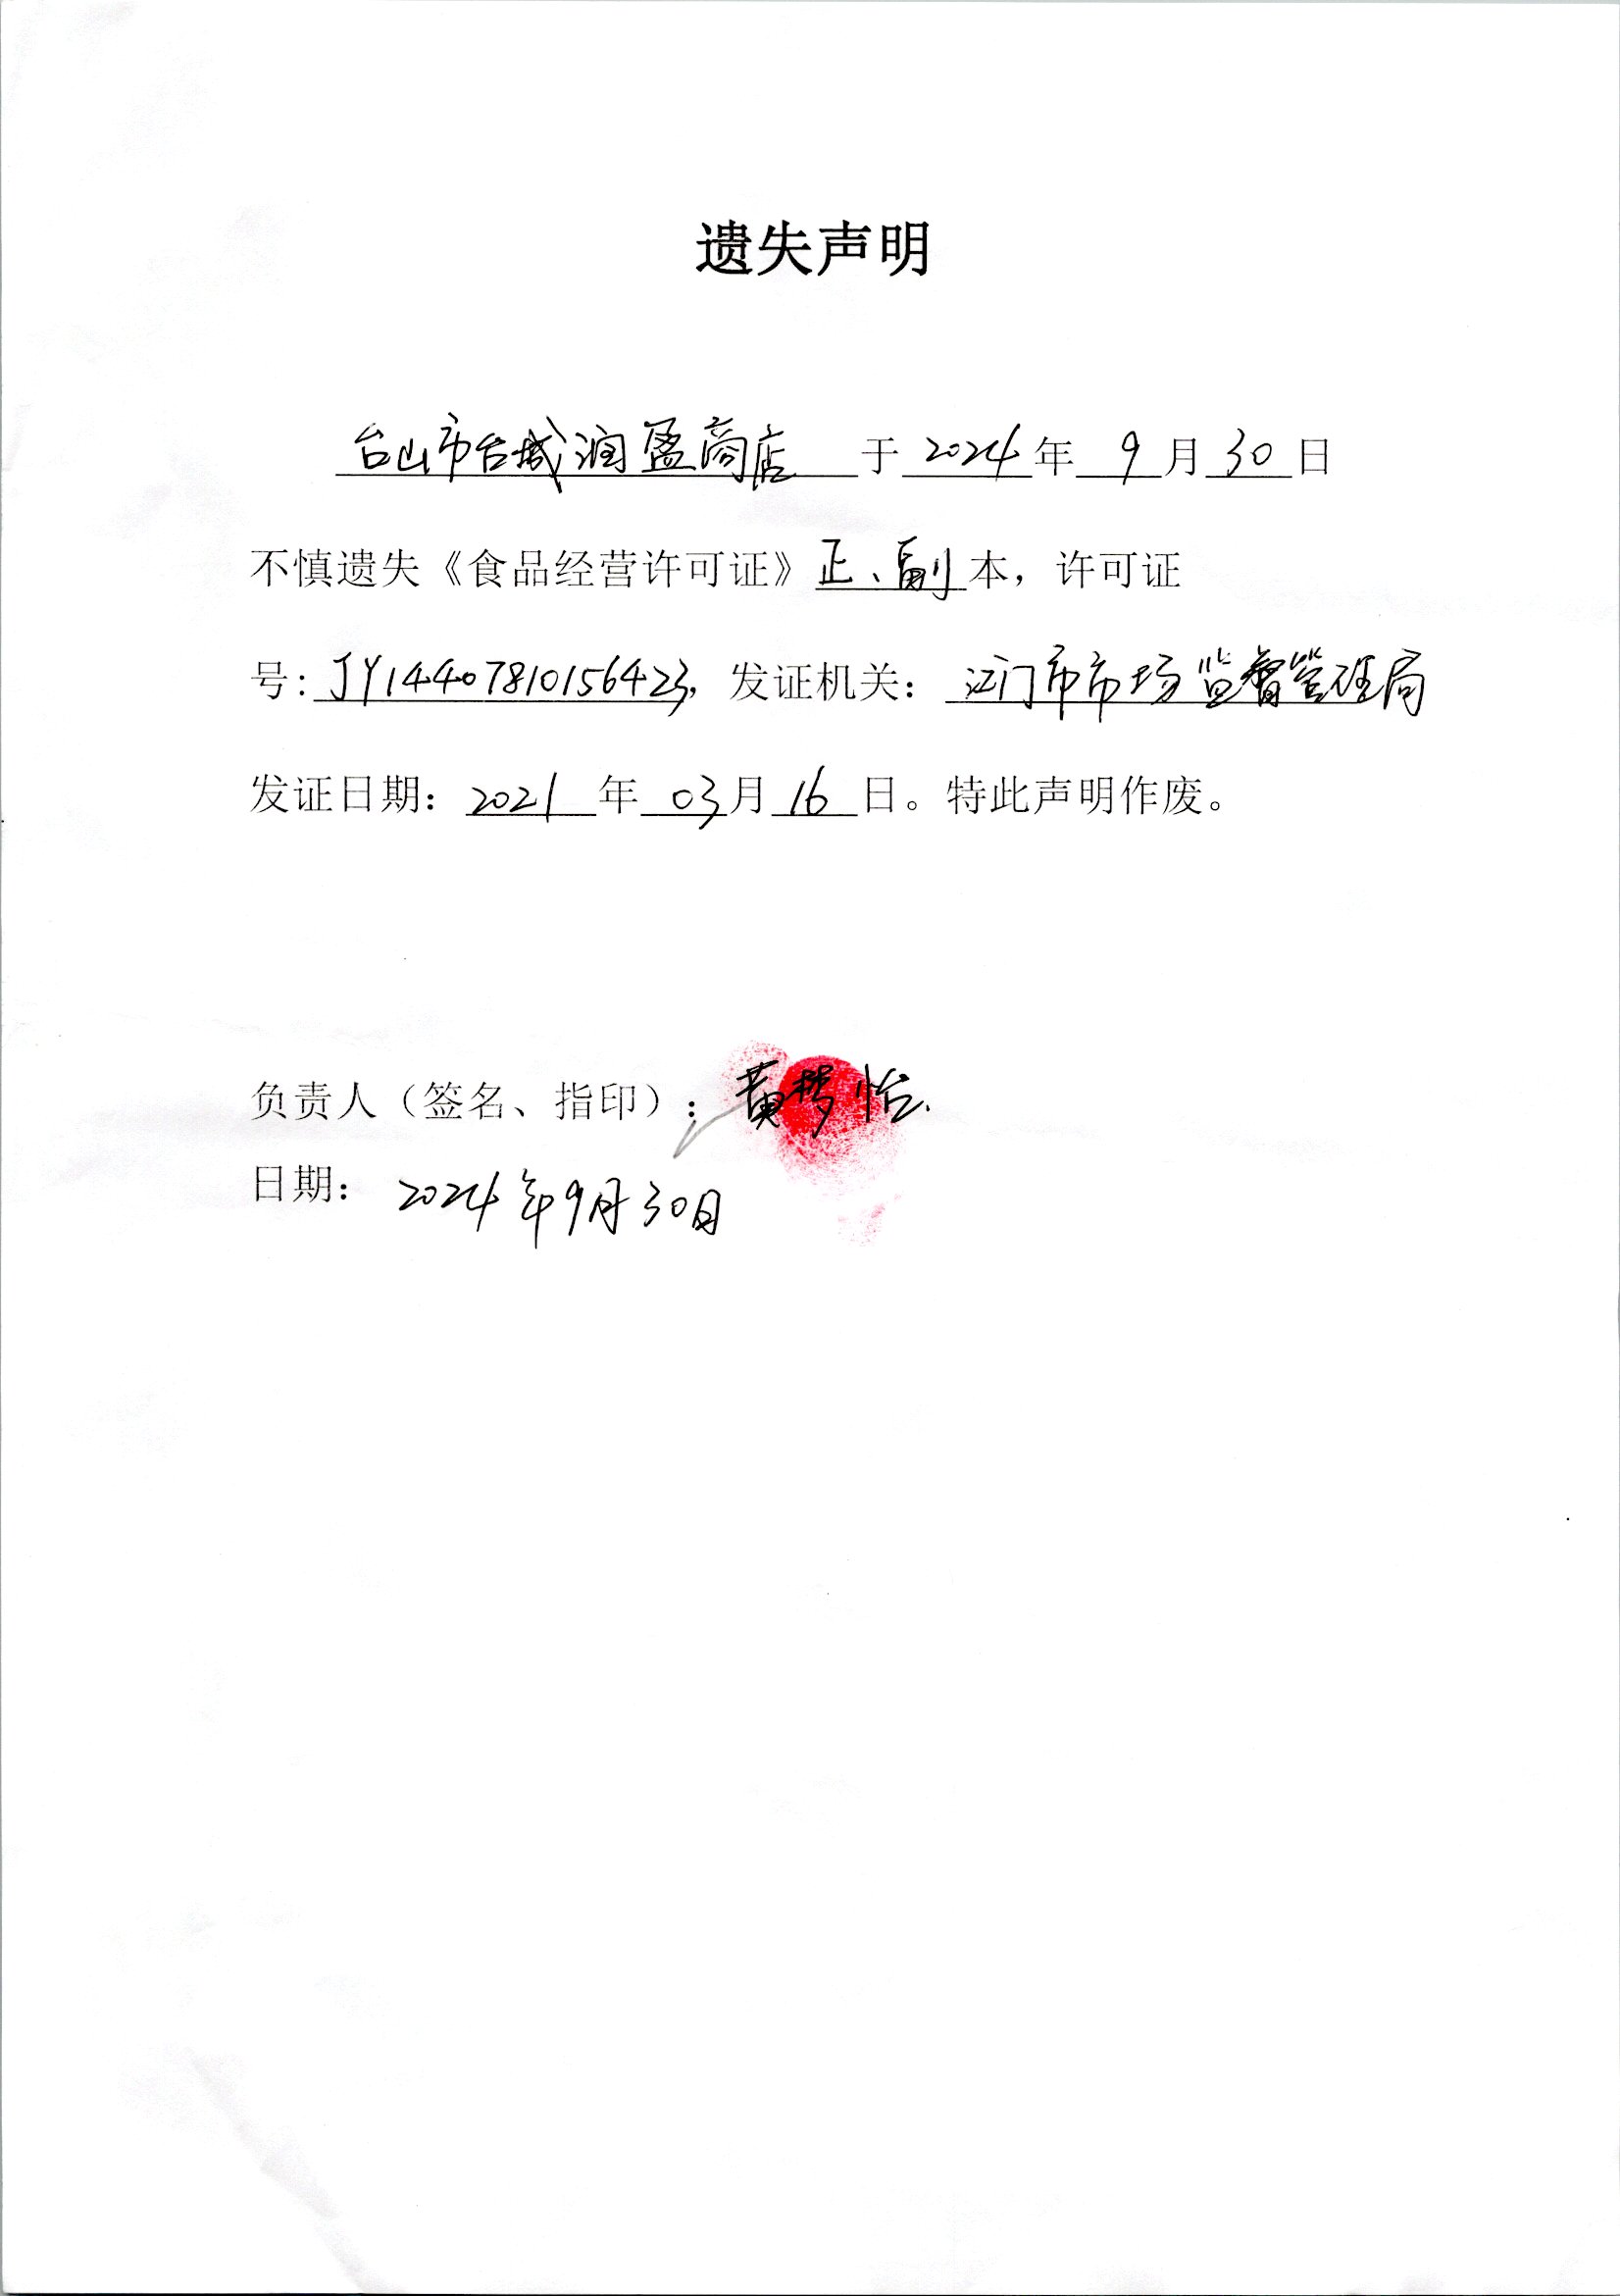 遗失声明
台山市台城润盈商店 于 2024 年 9 月 30 日
不慎遗失《食品经营许可证》正、副本，许可证
号：JY14407810156423，发证机关：江门市市场监督管理局
发证日期：2021 年 03 月 16 日。特此声明作废。
负责人（签名、指印）：黄梦怡
日期：2024年9月30日